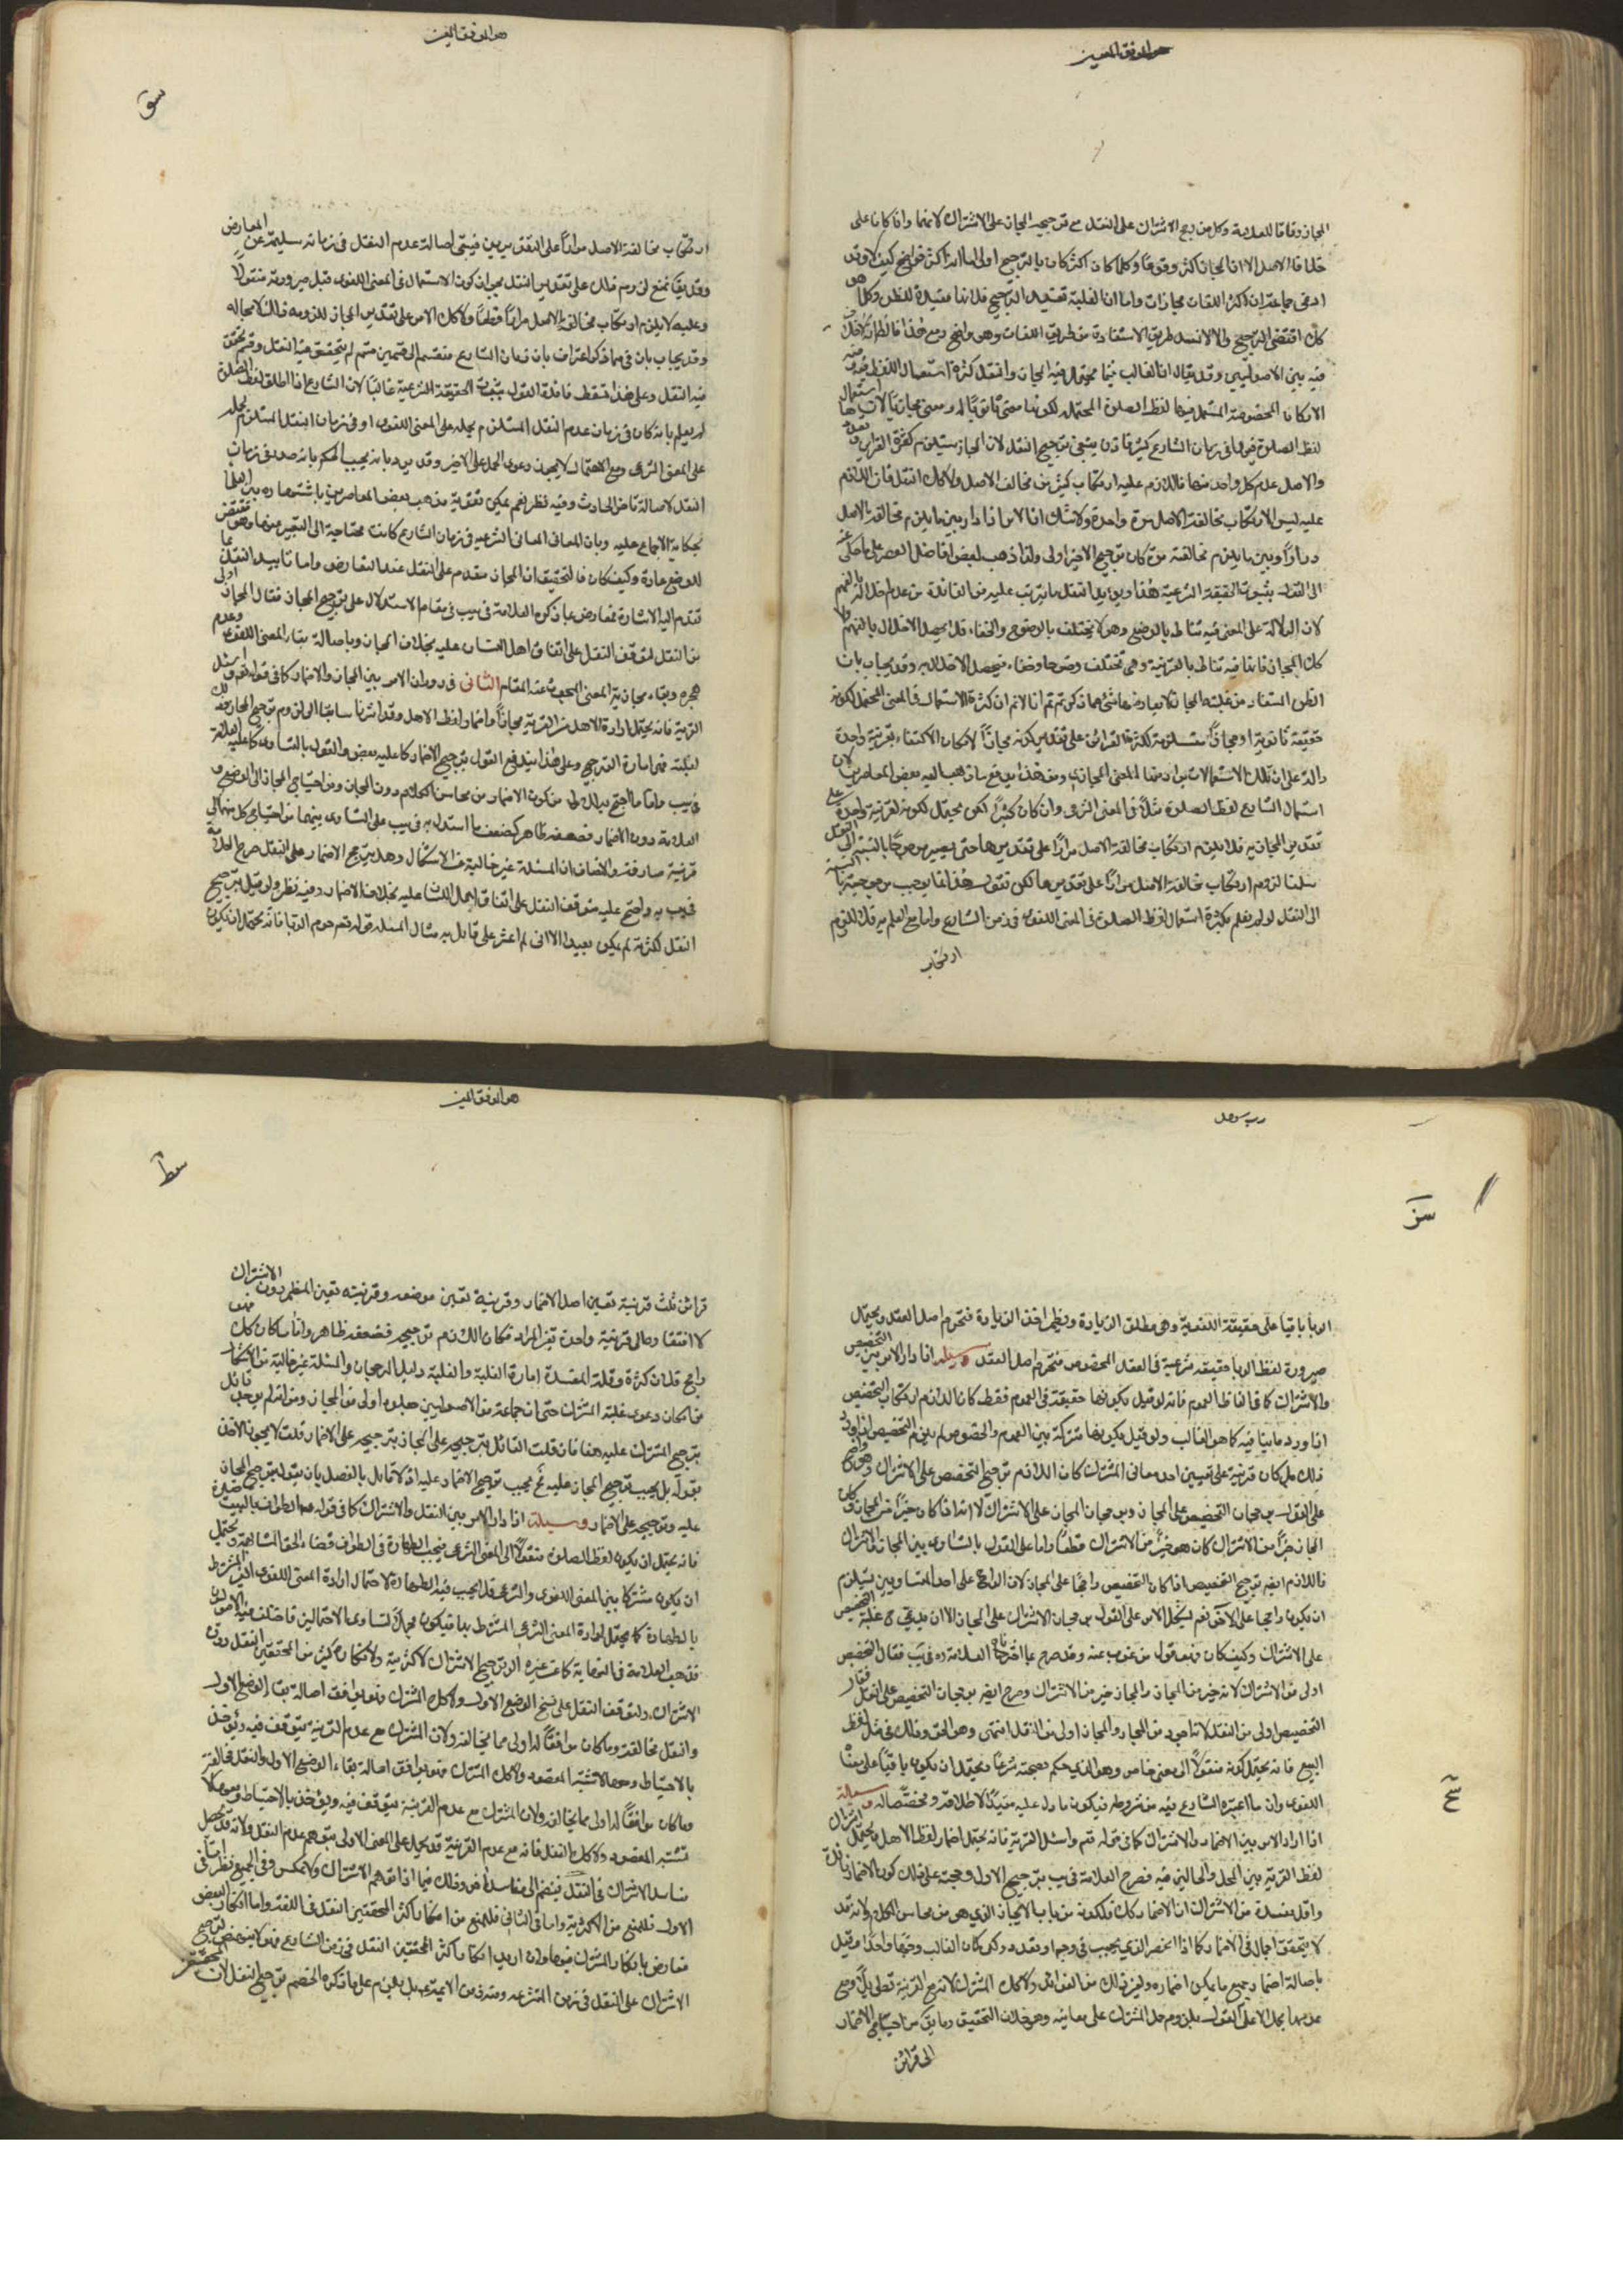 هو الموفق المعين
المجاز وفاقا للعلامة وكل من رجح الاشتراك على النقل مع ترجيحه المجاز على الاشتراك لانهما وان كانا على
خلاف الاصل الا ان المجاز اكثر وقوعا وكلما كان اكثر كان بالترجيح اولى اما انه اكثر فواضح كيف لا وقد
ادعى جماعة ان اكثر اللغات مجازات واما ان الغلبة تقتضى الترجيح فلانها مفيدة للظن وكلما هو
كك اقتضى الترجيح والا لانسد طريق الاستفادة من طريق اللغات وهو واضح ومع هذا فالظ انه لا خلاف
فيه بين الاصوليين وقد يقال ان الغالب فيما يحتمل فيه المجاز والنقل كثرة استعمال اللفظ فيه
الاركان المخصوصة المستعمل فيها لفظ الصلوة المحتملة لكونها معنى ثانويا له ومعنى مجازيا لا ريب استعمال
لفظ الصلوة فيها فى زمان الشارع كثير فاذن ينبغى ترجيح النقل لان المجاز يستلزم كثرة القراين
والاصل عدم كل واحد منها فاللازم عليه ارتكاب كثير من مخالف الاصل ولا كك النقل فان اللازم
عليه ليس الا ارتكاب مخالفة الاصل مرة واحدة ولا شك ان الامر اذا دار بين ما يلزم مخالفة الاصل
مرارا وبين ما يلزم مخالفته مرة كان ترجيح الاخير اولى ولذا ذهب بعض افاضل العصر على ما حكى عنه
الى القطع بثبوت الحقيقة الشرعية هذا ويؤيد النقل ما يترتب عليه من الفائدة من عدم اخلاله بالفهم
لان الدلالة على المعنى فيه تناط بالوضع وهو لا يختلف بالوضوح والخفاء فلا يحصل الاخلال بالفهم ولا
كك المجاز فانها فيه تناط بالقرينة وهى تختلف وضوحا وخفاء فيحصل الاخلال به وقد يجاب بان
الظن المستفاد من غلبة المجاز لا يعارضها شئ مما ذكرتم ثم انا لا نم ان كثرة الاستعمال فى المعنى المحتمل لكونه
حقيقة ثانوية او مجازا مستلزمة لكثرة القرائن على تقدير كونه مجازا لامكان الاكتفاء بقرينة واحدة
دالة على ان تلك الاستعمالات يراد منها المعنى المجازى ومن هذا يندفع ما ذهب اليه بعض المعاصرين لان
استعمال الشارع لفظ الصلوة مثلا فى المعنى الشرعى وان كان كثيرا لكن يحتمل لكونه لقرينة واحدة على
تقدير المجازية فلا يلزم ارتكاب مخالفة الاصل مرارا على تقديرها حتى يصير مرجوحا بالنسبة الى النقل
سلمنا لزوم ارتكاب مخالفة الاصل مرارا على تقديرها لكن نقول هذا انما يوجب مرجوحيتها بالنسبة
الى النقل لو لم يعلم بكثرة استعمال لفظ الصلوة فى المعنى اللغوى فى زمن الشارع واما مع العلم به فلا للزوم
ارتكاب
هو الموفق المعين
ارتكاب مخالفة الاصل مرارا على التقديرين فيبقى اصالة عدم النقل فى زمانه سليمة عن المعارض
وقد يقا بمنع لزوم ذلك على تقدير النقل بجواز كون الاستعمال فى المعنى اللغوى قبل صيرورته منقولا
وعليه لا يلزم ارتكاب مخالفة الاصل مرارا قطعا ولا كك الامر على تقدير المجاز للزومه ذلك لا محالة
وقد يجاب بان فى ما ذكر اعتراف بان زمان الشارع منقسم الى قسمين قسم لم يتحقق فيه النقل وقسم تحقق
فيه النقل وعلى هذا تسقط فائدة القول بثبوت الحقيقة الشرعية غالبا لان الشارع اذا اطلق لفظ الصلوة
لم يعلم بانه كان فى زمان عدم النقل المستلزم لحمله على المعنى اللغوى او فى زمان النقل المستلزم لحمله
على المعنى الشرعى ومع الاحتمال لا يجوز دعوى الحمل على الاخير وقد يرد بانه يجب الحكم بانه صدر فى زمان
النقل لاصالة تاخر الحادث وفيه نظر نعم يمكن تقوية مذهب بعض المعاصرين باشتهاره بين العلما
بحكاية الاجماع عليه وبان المعانى الشرعيه فى زمان الشارع كانت محتاجة الى التعبير عنها وهو مما يقتضى
الوضع عادة وكيف كان فالتحقيق ان المجاز مقدم على النقل عند التعارض واما تاييد النقل بما
تقدم اليه الاشارة فمعارض بما ذكره العلامة فى يب فى مقام الاستدلال على ترجيح المجاز فقال المجاز اولى
من النقل لتوقف النقل على اتفاق اهل اللسان عليه بخلاف المجاز وباصالة بقاء المعنى اللغوى وعدم
هجره وبقاء مجازية المعنى المبحوث عنه المقام الثانى فى دوران الامر بين المجاز والاضمار كما فى قوله تعم واسئل
القرية فانه يحتمل ارادة الاهل من القرية مجازا واضمار لفظ الاهل وقد اشرنا سابقا الى لزوم ترجيح المجاز وذلك
لغلبته فهى امارة الترجيح وعلى هذا يندفع القول بترجيح الاضمار كما عليه بعض والقول بالتساوى كما عليه العلامة
فى يب واما ما احتج به للاول من كون الاضمار من محاسن الكلام دون المجاز ومن احتياج المجاز الى الوضع و
العلاقة دون الاضمار فضعفه ظاهر كضعف ما استدل به فى يب على التساوى بينهما من احتياج كل منهما الى
قرينة صارفة والانصاف ان المسئلة غير خالية عن الاشكال وهل يترجح الاضمار على النقل صرح العلامة
فى يب به واحتج عليه بتوقف النقل على اتفاق اهل اللسان عليه بخلاف الاضمار وفيه نظر ولو قيل بترجيح
النقل لكثرته لم يكن بعيدا الا انى لم اعثر على قائل به مثال المسئلة قوله تعم حرم الربا فانه يحتمل ان يكون
رب سهل
الربا باقيا على حقيقته اللغوية وهى مطلق الزيادة ويضمر اخذ الزيادة فتحرم اصل العقد ويحتمل
صيرورة لفظ الربا حقيقة شرعية فى العقد المخصوص فتحرم اصل العقد وسيلة اذا دار الامر بين التخصيص
والاشتراك كما فى الفاظ العموم فانه لو قيل بكونها حقيقة فى العموم فقط كان اللازم ارتكاب التخصيص
اذا ورد ما ينافيه كما هو الغالب ولو قيل بكونها مشتركة بين العموم والخصوص لم يلزم التخصيص اذا ورد
ذلك بل كان قرينة على تعيين احد معانى المشترك كان اللازم ترجيح التخصيص على الاشتراك وهو واضح
على القول برجحان التخصيص على المجاز ورجحان المجاز على الاشتراك لانه اذا كان خيرا من المجاز وكان
المجاز خيرا من الاشتراك كان هو خيرا من الاشتراك قطعا واما على القول بالتساوى بين المجاز والاشتراك
فاللازم ايضه ترجيح التخصيص اذا كان التخصيص راجحا على المجاز لان الراجح على احد المتساويين يستلزم
ان يكون راجحا على الاخر نعم يشكل الامر على القول برجحان الاشتراك على المجاز الا ان يدعى غلبة التخصيص
على الاشتراك وكيف كان فهذا قول مرغوب عنه وقد صرح بما اخترناه العلامة ره فى يب فقال التخصيص
اولى من الاشتراك لانه خير من المجاز والمجاز خير من الاشتراك وصرح ايضه برجحان التخصيص على النقل فقال
التخصيص اولى من النقل لانه اجود من المجاز والمجاز اولى من النقل انتهى وهو الحق وذلك فى مثل لفظ
البيع فانه يحتمل كونه منقولا الى معنى خاص وهو الذى حكم بصحته شرعا ويحتمل ان يكون باقيا على معناه
اللغوى وان ما اعتبره الشارع فيه من شروطه فيكون ما دل عليه مقيدا لاطلاقه ومخصصا له وسيلة
اذا دار الامر بين الاضمار والاشتراك كما فى قوله تعم واسئل القرية فانه يحتمل اضمار لفظ الاهل ويحتمل اشتراك
لفظ القرية بين المحل والحالين فيه فصرح العلامة فى يب بترجيح الاول وحجته على ذلك كون الاضمار
واقل مفسدة من الاشتراك ان الاضمار كك فلكونه من باب الايجاز الذى هو من محاسن الكلام ولانه قد
لا يتحقق اجمال فى الاضمار كما اذا انحصر الذى يجب فى وجه او تعدد ولكن كان الغالب وجها واحدا او قيل
باصالة اضمار جميع ما يمكن اضماره وليس ذلك من الفوائد ولا كك المشترك لانه مع القرينة تطويل ومع
عدمها مجمل الا على القول بلزوم حمل المشترك على معانيه وهو خلاف التحقيق وما يق من احتياج الاضمار
الى قرائن
هو الموفق المعين
قرائن ثلث قرينة تعين اصل الاضمار وقرينة تعين موضعه وقرينته تعين المضمر دون الاشتراك
لافتقاره الى قرينة واحدة تفسر المراد فكان اللازم ترجيحه فضعفه ظاهر واذا ما كان كك فهو
راجح قلت كثرة وقلة المفسدة امارة الغلبة والغلبة دليل الرجحان والمسئلة غير خالية من الاشكال
من امكان دعوى غلبة المشترك حتى ان جماعة من الاصوليين جعلوه اولى من المجاز ومن انه لم يوجد قائل
بترجيح المشترك عليه هنا فان قلت القائل بترجيحه على المجاز يرجحه على الاضمار قلت لا يجوز الاخذ
بقوله بل يجب ترجيح المجاز عليه ثم يجب ترجيح الاضمار عليه اذ لا قائل بالفصل بان يقول بترجيح المجاز
عليه وترجيحه على الاضمار وسيلة اذا دار الامر بين النقل والاشتراك كما فى قوله صه الطواف بالبيت صلوة
فانه يحتمل ان يكون لفظ الصلوة منقولا الى المعنى الشرعى فيجب الطهارة فى الطواف قضاء لحق المشابهة ويحتمل
ان يكون مشتركا بين المعنى اللغوى والشرعى فلا يجب فيه الطهارة لاحتمال ارادة المعنى اللغوى الغير المشترط
بالطهارة كما يحتمل ارادة المعنى الشرعى المشترط بها فيكون مجملا لتساوى الاحتمالين فاختلف فيه الاصوليون
فذهب العلامة فى النهاية كما عن غيره الى ترجيح الاشتراك لاكثريته ولانكار كثير من المحققين النقل دون
الاشتراك ولتوقف النقل على نسخ الوضع الاول ولا كك المشترك فهو يوافق اصالة بقاء الوضع الاول
والنقل مخالفه وما كان موافقا لها اولى مما يخالفه ولان المشترك مع عدم القرينة يتوقف فيه ويؤخذ
بالاحتياط وبهما لا يشتبه المقصود ولا كك المشترك فهو يوافق اصالة بقاء الوضع الاول والنقل مخالفه
وما كان موافقا لها اولى مما يخالفه ولان المشترك مع عدم القرينة يتوقف فيه ويؤخذ بالاحتياط وبهما لا
يشتبه المقصود ولا كك النقل فانه مع عدم القرينة قد يحمل على المعنى الاول بتوهم عدم النقل ولانه قد يحصل
مفاسد الاشتراك فى النقل فينضم الى مفاسد اخر وذلك فيما اذا توهم الاشتراك ولا عكس وفى الجميع نظر اما فى
الاول فللمنع من الاكثرية واما فى الثانى فللمنع من انكار اكثر المحققين النقل فى اللغة واما انكار البعض
فمعارض بانكار المشترك فيها وان اريد انكار اكثر المحققين النقل فى زمن الشارع فهو لا يقتضى ترجيح
الاشتراك على النقل فى زمن المتشرعه ومنه زمن الائمة عه بل يلزم على ما ذكره الخصم ترجيح النقل لان